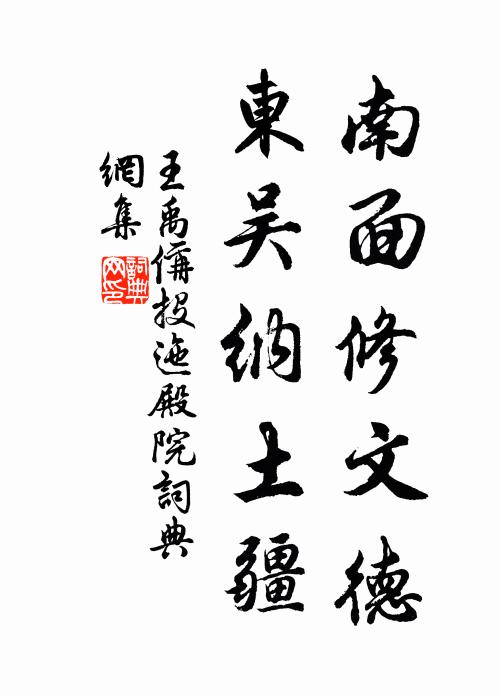 南面修文德
東吴納土疆
王禹偁投迤殿院詞典
網集
詞典網印